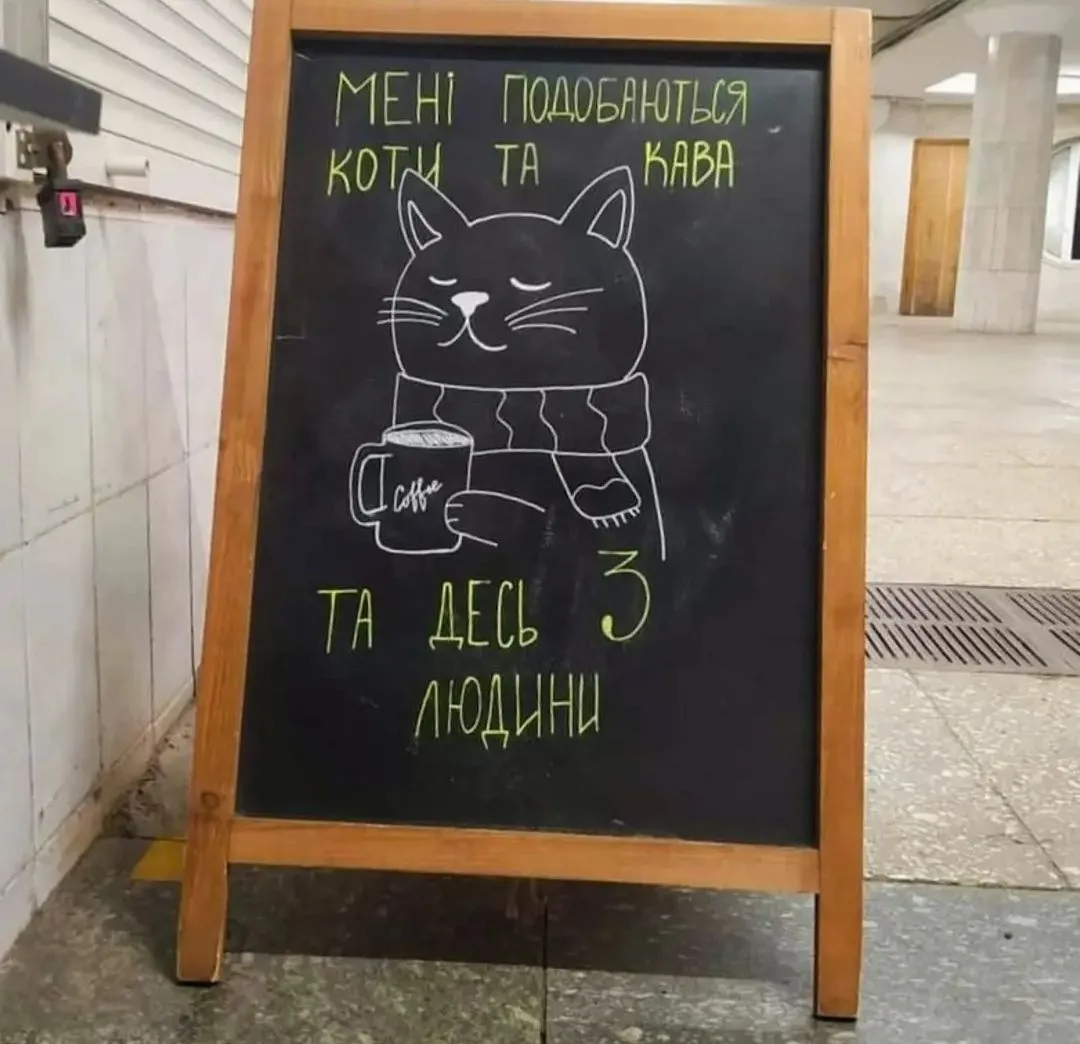 МЕНІ ПОДОБАЮТЬСЯ
КОТИ ТА КАВА
Coffee
ТА ДЕСЬ 3
ЛЮДИНИ